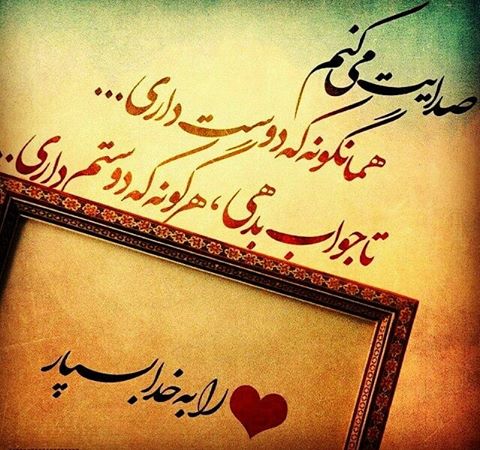 صدایت می کنم
همانگونه که دوست داری...
تا جواب بدهی، هرگونه که دوستم داری...
را به خدا بسپار